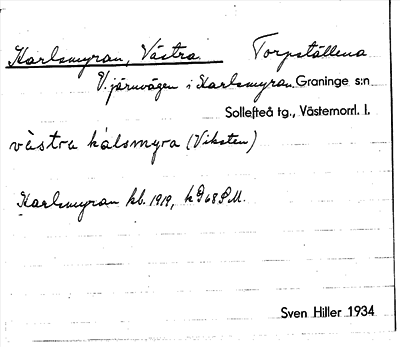 Karlsmyran, Västra Torpställena
V. järnvägen i Karlsmyran. Graninge s:n
Sollefteå tg., Västernorrl. l.
västra kálsmyra (Viksten)
Karlsmyran kb. 1919, k
Sven Hiller 1934